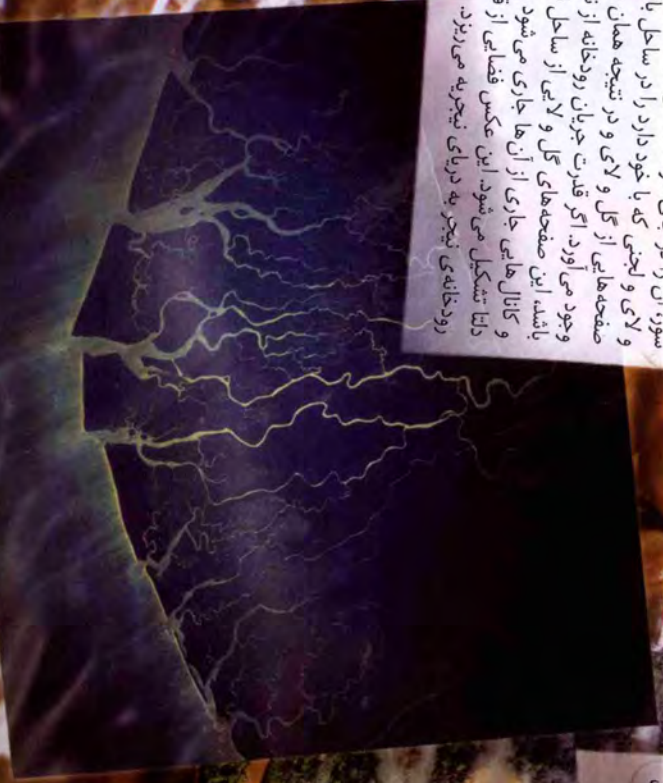 و لای و لجنی که با خود دارد را در ساحل
صفحه‌هایی از گل و لای و در نتیجه همان
وجود می‌آورد. اگر قدرت جریان رودخانه از
باشد، این صفحه‌های گل و لایی از ساحل
و کانال‌هایی جاری از آن‌ها جاری می‌شود
دلتا تشکیل می‌شود. این عکس فضایی از
رودخانه‌ی نیجر به دریای نیجریه می‌ریزد.